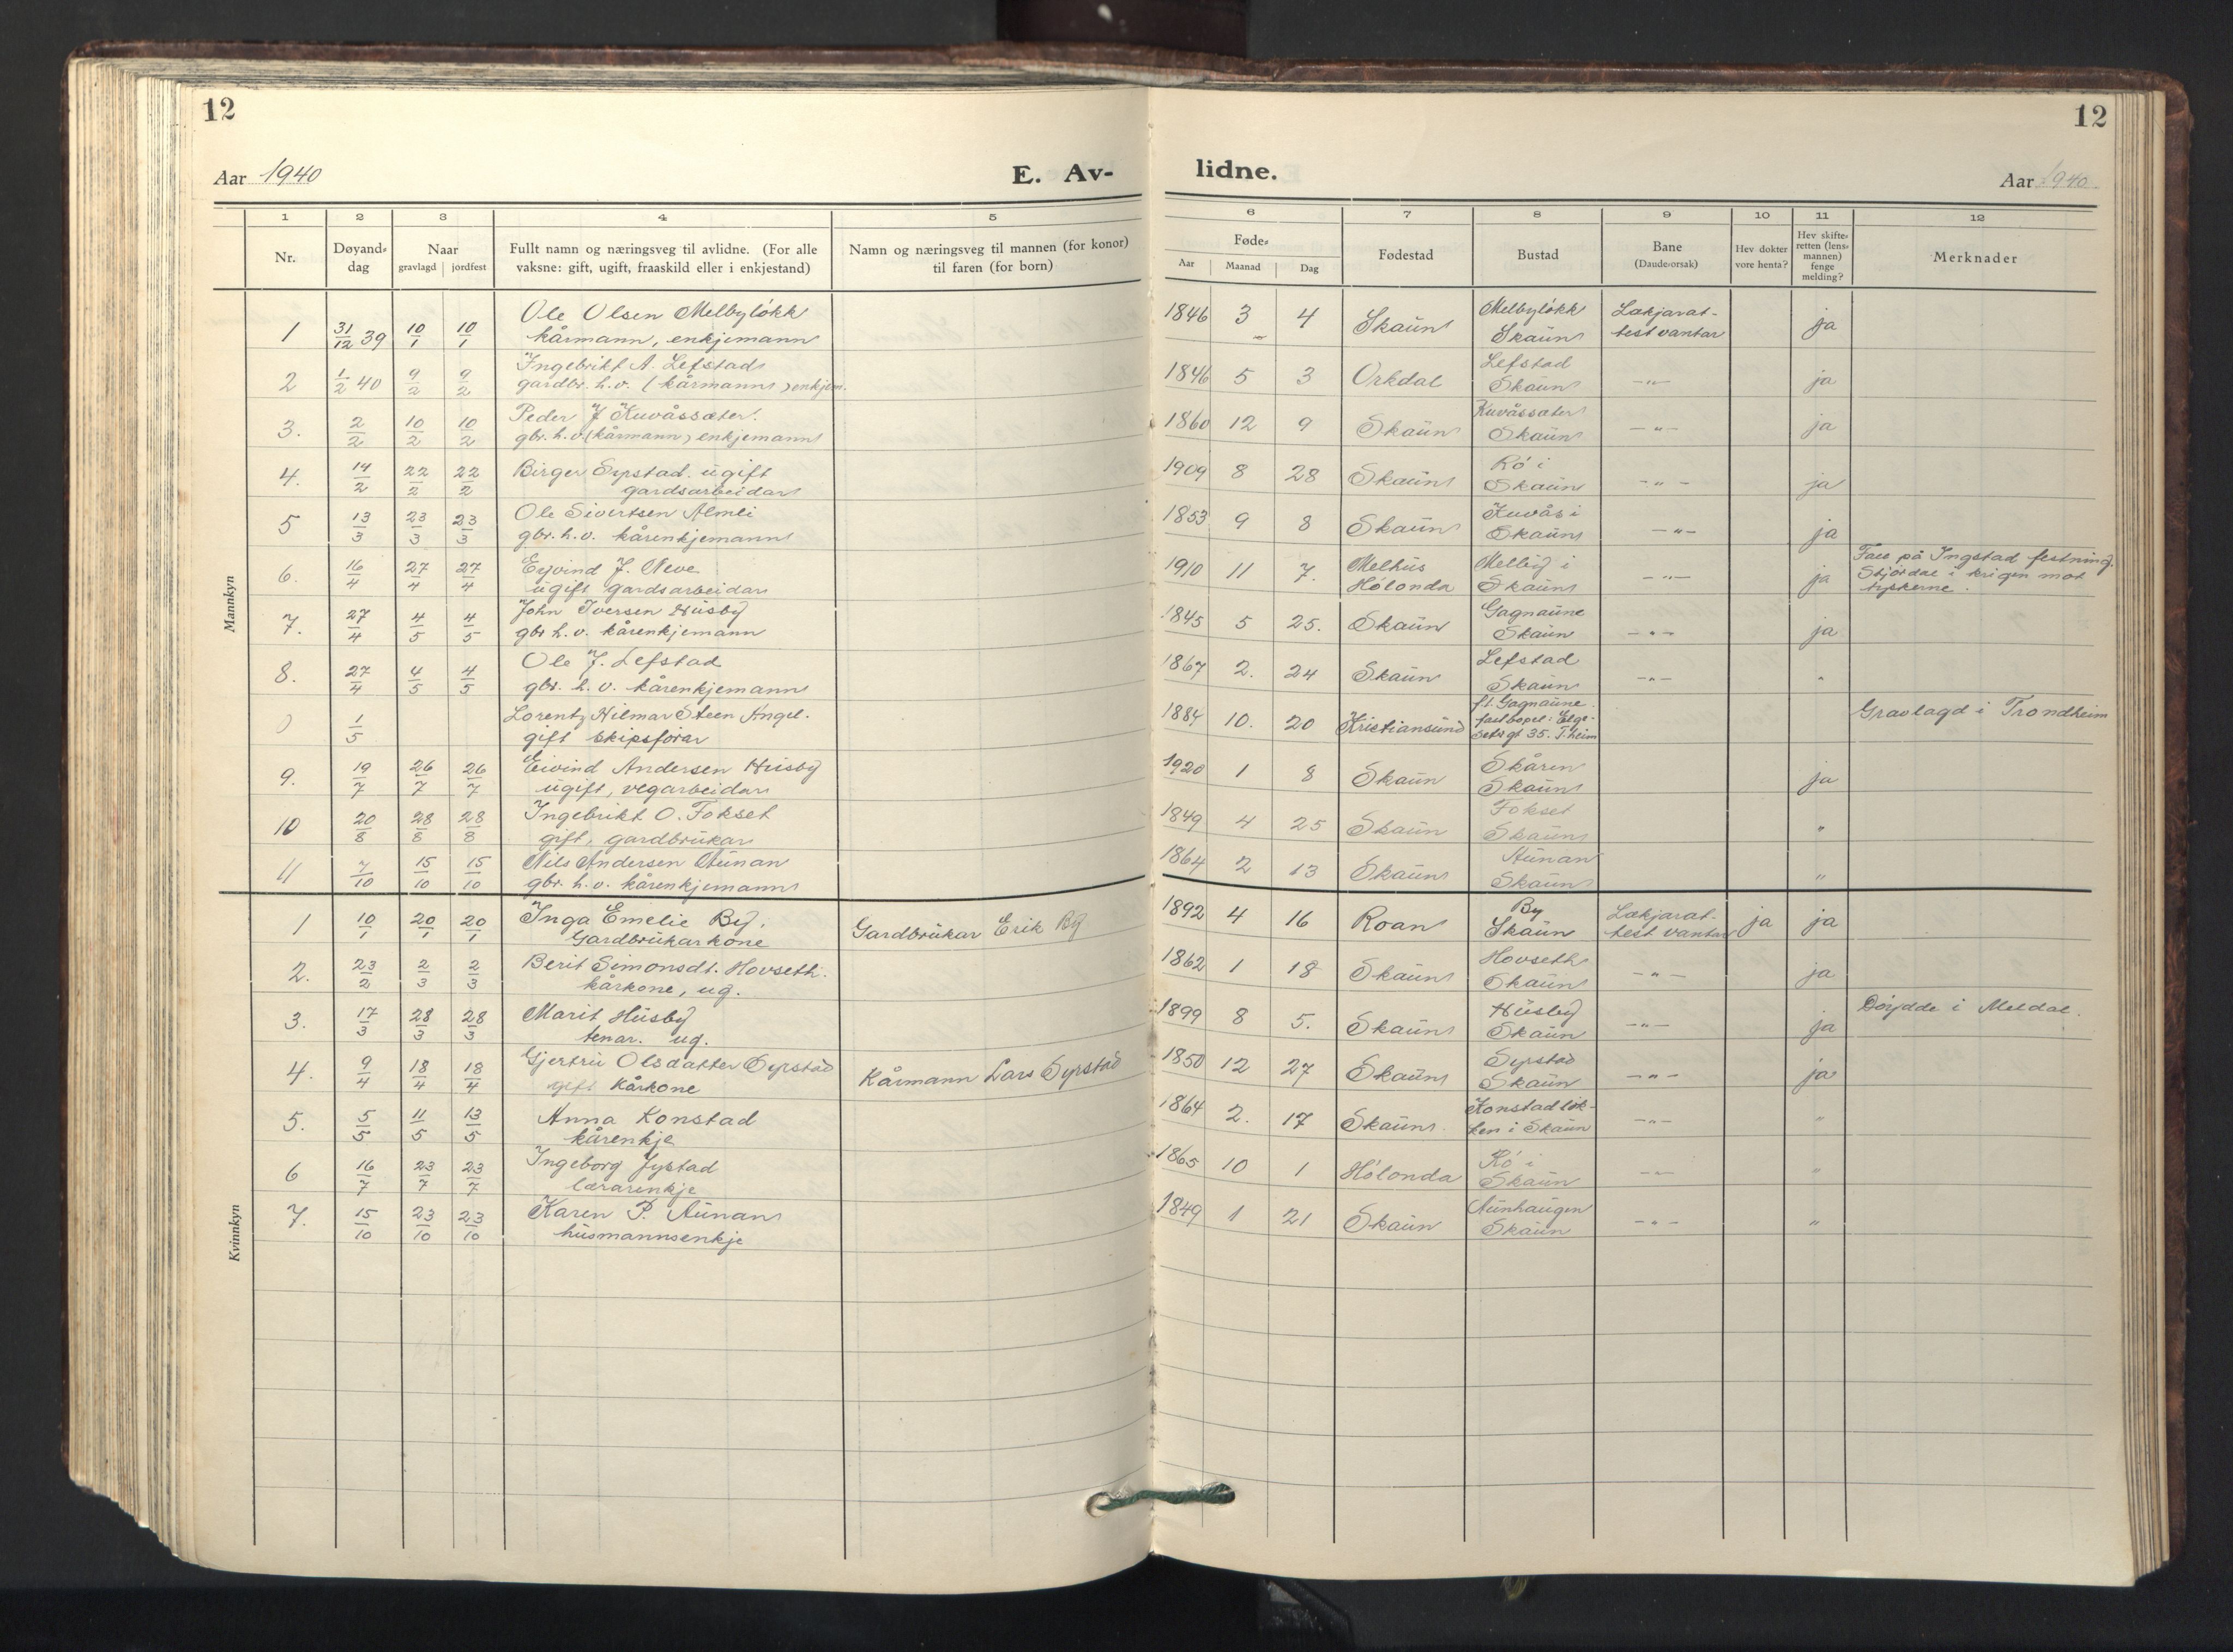 12
12
Aar 1940
E. Av-
lidne.
Aar 1940
1 2 3 4 5 6 7 8 9 10 11 12
Nr.
Døyand-
dag
Naar
gravlagd jordfest
Fullt namn og næringsveg til avlidne. (For alle
vaksne: gift, ugift, fraaskild eller i enkjestand)
Namn og næringsveg til mannen (for konor)
til faren (for born)
Føde-
Aar Maanad Dag
Fødestad
Bustad
Bane
(Daudeorsak)
Hev dokter
vore henta?
Hev skifte-
retten (lens-
mannen)
fenge
melding?
Merknader
Mannkyn
1 31/12 39 10/1 10/1 Ole Olsen Melbyløkk 1846 3 4 Skaun Melbyløkk Lækjarat-
kårmann, enkjemann Skaun test vantar ja
2 1/2 40 9/2 9/2 Ingebrikt A. Lefstad 1846 5 3 Orkdal Lefstad
gardbr. h.v. (kårmann) enkjem. Skaun -"- ja
3. 2/2 10/2 10/2 Peder J Kuvåssæter. 1860 12 9 Skaun Kuvåssæter
gbr. h.v. (kårmann) enkjemann Skaun -"- ja
4. 14/2 22/2 22/2 Birger Syrstad. ugift 1909 8 28 Skaun Rø i
gardsarbeidar Skaun -"- ja
5 13/3 23/3 23/3 Ole Sivertsen Almli 1853 9 8 Skaun Kuvås i
gbr. h.v. kårenkjemann Skaun -"- ja
6. 16/4 27/4 27/4 Eyvind J. Neve 1910 11 7. Melhus Melby i
ugift gardsarbeidar Hølonda Skaun -"- ja
Fall på Ingstad festning.
Stjørdal i krigen mot
tyskerne.
7. 27/4 4/5 4/5 John Iversen Husby 1845 5 25. Skaun Gagnaune
gbr h.v. kårenkjemann Skaun -"- ja
8. 27/4 4/5 4/5 Ole J. Lefstad 1867 2. 24 Skaun Lefstad
gbr. h.v. kårenkjemann Skaun -"- "
1/5 Lorentz Hilmar Steen Angel. 1884 10. 20 Kristiansund ft. Gagnaune. Gravlagd i Trondheim
gift skipsførar fast bopel: Elge-
seter gt 35. T.heim
9. 19/7 26/7 26/7 Eivind Andersen Husby 1920 1 8 Skaun Skåren
ugift, vegarbeidar Skaun ja
10 20/8 28/8 28/8 Ingebrikt O. Fokset 1849 4 25 Skaun Fokset
gift, gardbrukar Skaun "
11 7/10 15/10 15/10 Nils Andersen Aunan 1864 2 13 Skaun Aunan
gbr. h.v. kårenkjemann Skaun "
Kvinnkyn
1 10/1 20/1 20/1 Inga Emelie By. Gardbrukar Erik By 1892 4 16 Roan By Lækjarat- ja ja
Gardbrukarkone Skaun test vantar
2. 23/2 2/3 2/3 Berit Simonsdt. Hovseth. 1862 1 18 Skaun Hovseth
kårkone, ug. Skaun -"- ja
3. 17/3 28/3 28/3 Marit Husby 1899 8 5. Skaun Husby Døydde i Meldal.
tenar. ug. Skaun -"- ja
4. 9/4 18/4 18/4 Gjertru Olsdatter Syrstad Kårmann Lars Syrstad 1850 12 27 Skaun Syrstad
gift Kårkone Skaun -"- ja
5. 5/5 11/5 13/5 Anna Konstad 1864 2. 17 Skaun. Konstadløk-
kårenkje ken i Skaun -"- "
6 16/7 23/7 23/7 Ingeborg Jystad 1865 10 1 Hølonda Rø i
lærarenkje Skaun -"- "
7. 15/10 23/10 23/10 Karen P. Aunan 1849 1 21 Skaun Aunhaugen
husmannsenkje Skaun -"- "